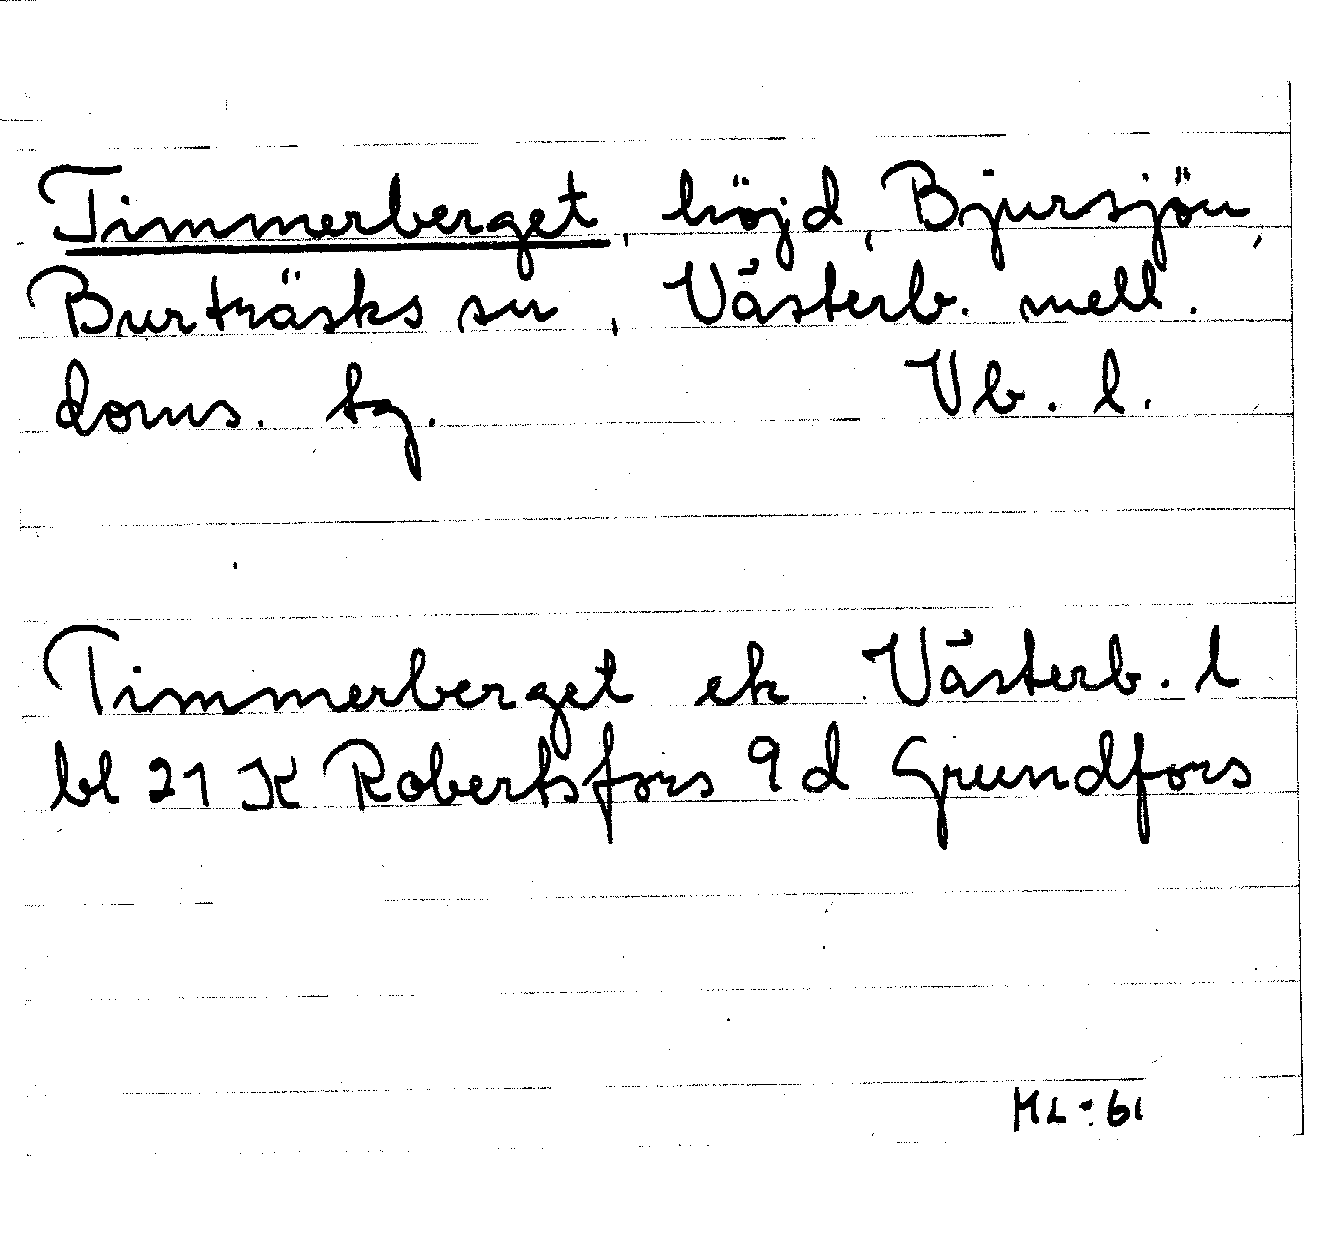 Timmerberget, höjd, Bjursjön,
Burträsks sn, Västerb. mell.
doms. tg. Vb. l.
Timmerberget ek Västerb. l
bl 21 K Robertsfors 9 d Grundfors
ML-61